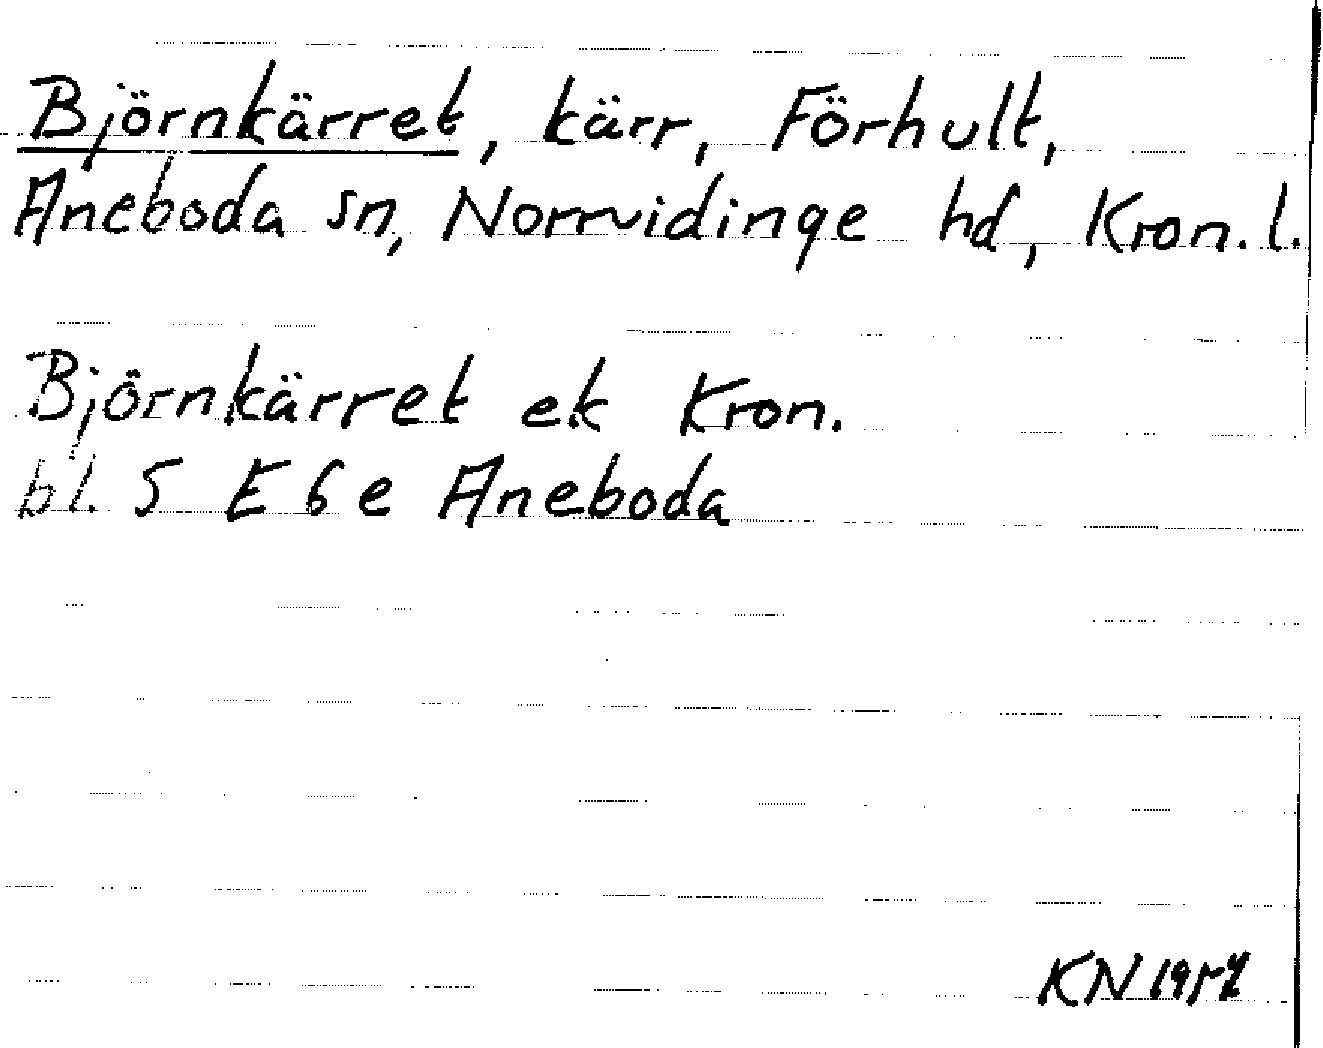 Björnkärret, kärr, Förhult,
Aneboda sn, Norrvidinge hd, Kron. l.
Björnkärret ek Kron.
bl. 5 E 6 e Aneboda
KN